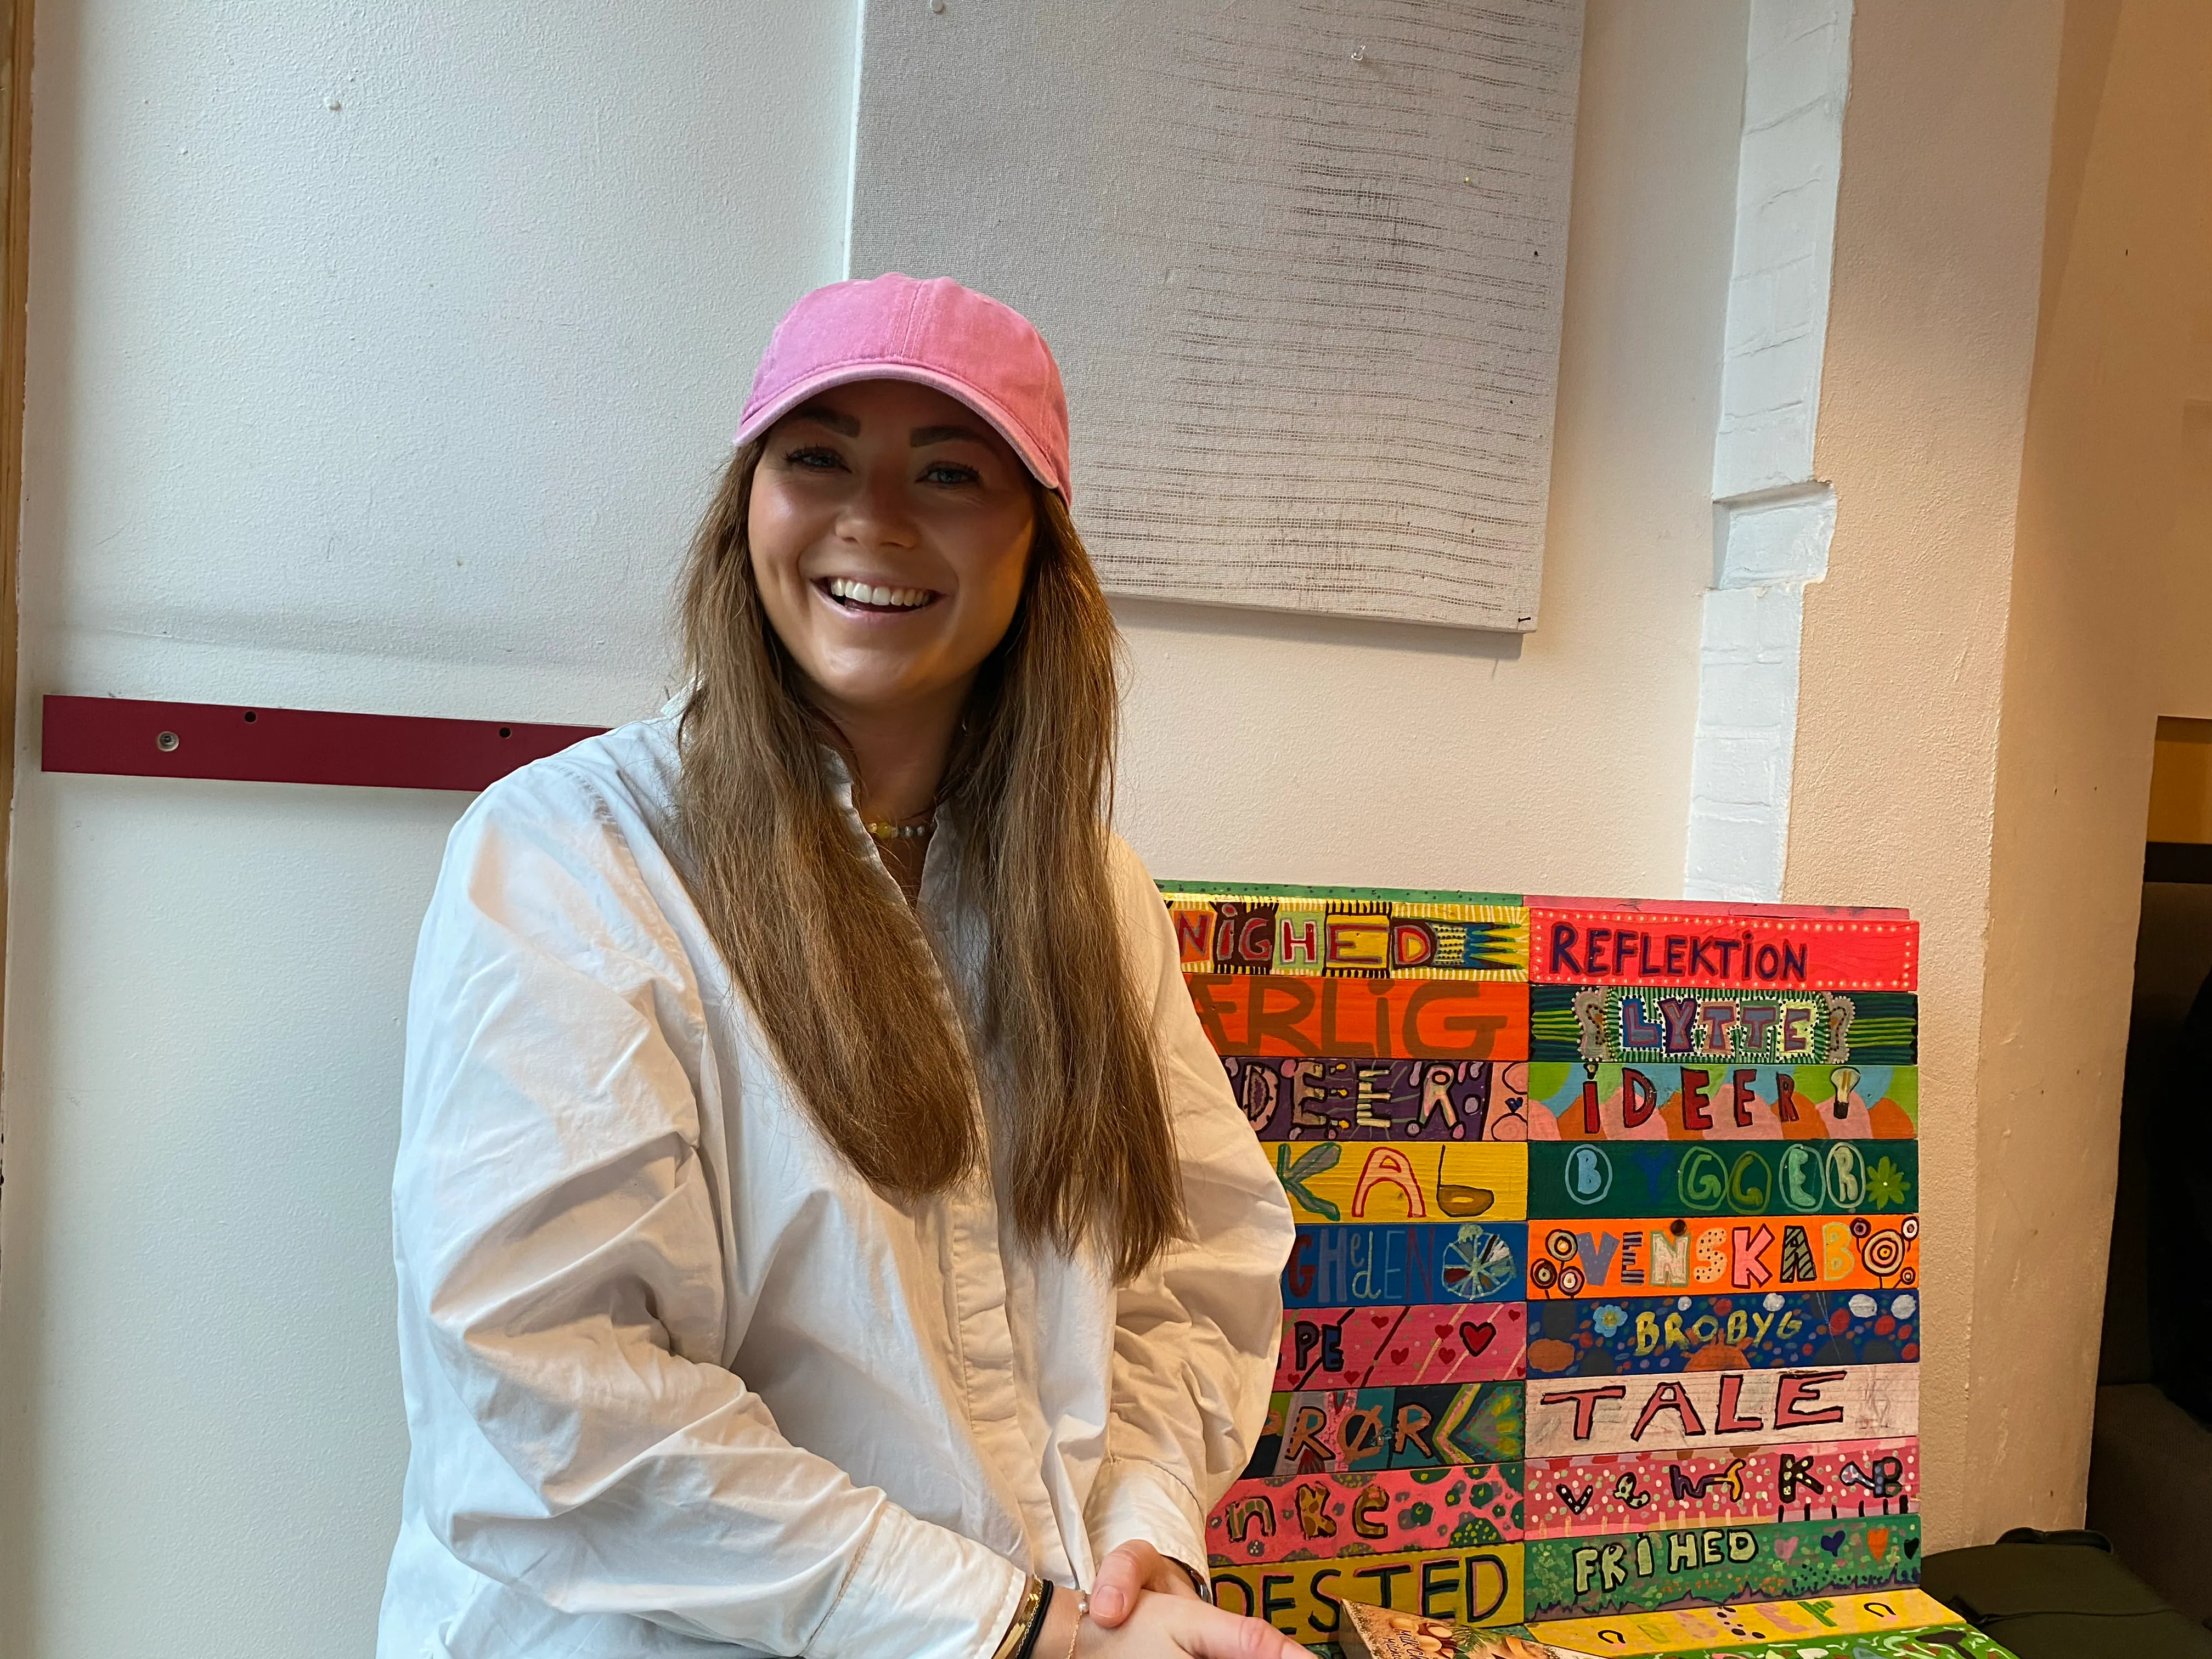 NiGHED
REFLEKTiON
ÆRLiG
LYTTE
DEER
iDEER!
KAb
BYGGER
GHedEN
VENSKAB
PE
BROBYG
RØR
TALE
nke
VENSKAB
DESTED
FRIHED